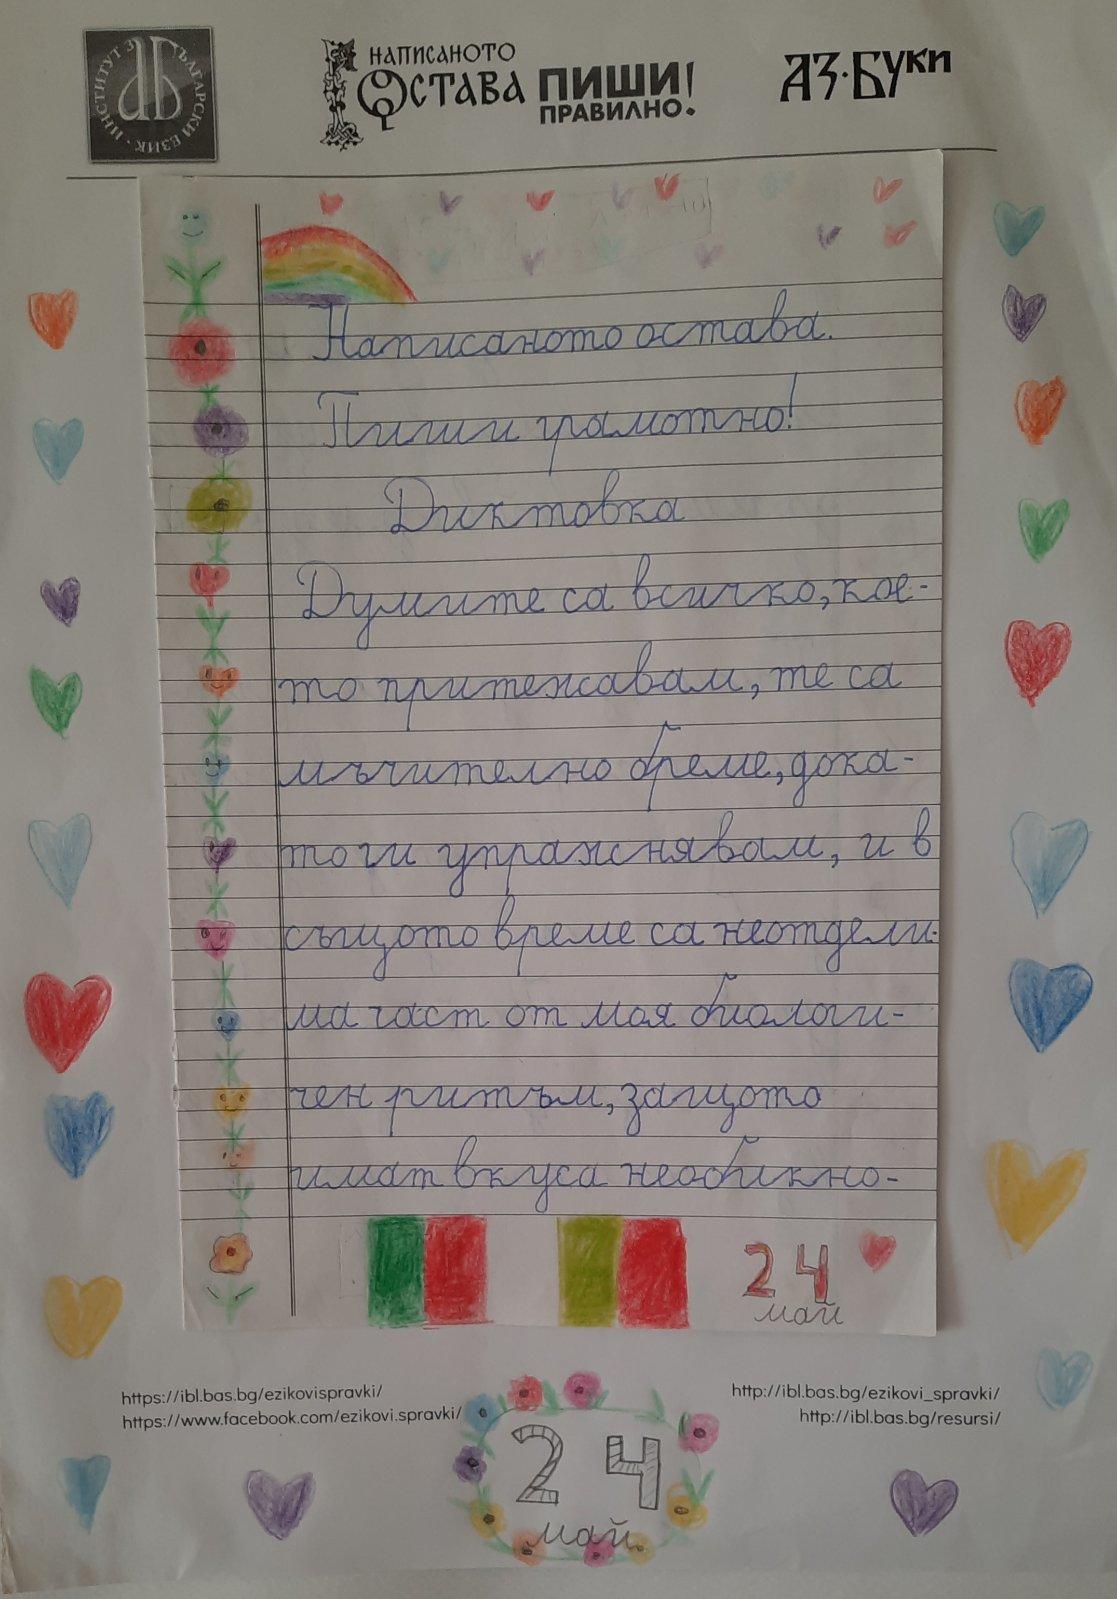 ИНСТИТУТ ЗА БЪЛГАРСКИ ЕЗИК
НАПИСАНОТО
ОСТАВА
ПИШИ!
ПРАВИЛНО.
АЗ·БУКИ
Написаното остава.
Пиши грамотно!
Диктовка
Думите са всичко, кое-
то притежавам, те са
мъчително бреме, дока-
то ги упражнявам, и в
същото време са неотдели-
ма част от моя биологи-
чен ритъм, защото
имат вкуса необикно-
24
май
https://ibl.bas.bg/ezikovispravki/
https://www.facebook.com/ezikovi.spravki/
http://ibl.bas.bg/ezikovi_spravki/
http://ibl.bas.bg/resursi/
24
май